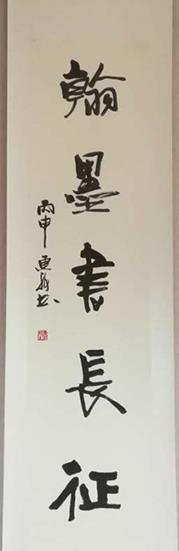 翰墨書長征
丙申